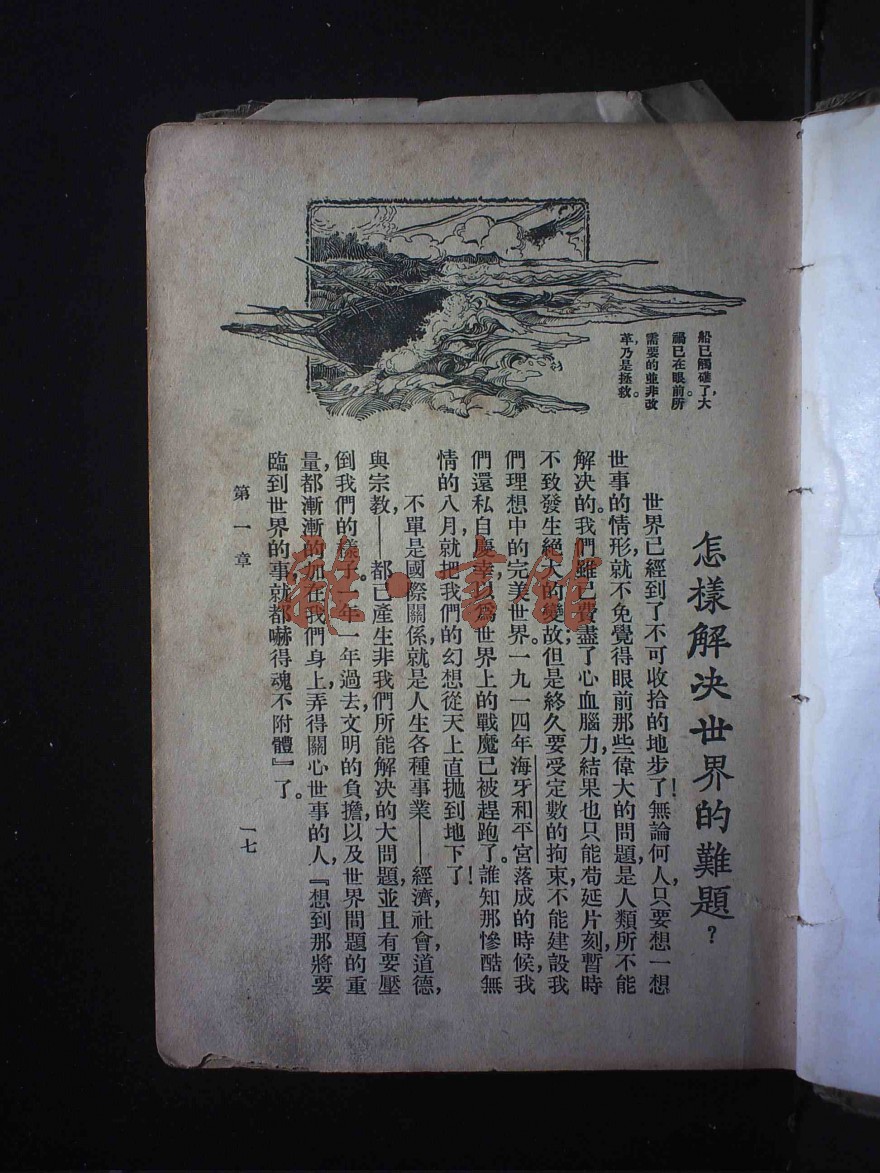 船已觸礁了，大
禍已在眼前。所
需要的並非改
革，乃是拯救。
怎樣解決世界的難題？
世界已經到了不可收拾的地步了！無論何人，只要想一想
世事的情形，就不免覺得眼前那些偉大的問題，是人類所不能
解決的。我們雖已費盡了心血腦力，結果也只能苟延片刻，暫時
不致發生絕大的變故；但是終久要受定數的拘束，不能建設我
們理想中的完美世界。一九一四年海牙和平宮落成的時候，我
們還私自慶幸，以為世界上的戰魔已被趕跑了。誰知那慘酷無
情的八月，就把我們的幻想從天上直抛到地下了！
不單是國際關係，就是人生各種事業——經濟，社會，道德，
與宗教，——都已產生非我們所能解決的大問題，並且有要壓
倒我們的樣子。一年一年過去，文明的負擔，以及世界問題的重
量，都漸漸的加在我們身上，弄得關心世事的人，『想到那將要
臨到世界的事，就都嚇得魂不附體』了。
第一章
一七
雜·書館